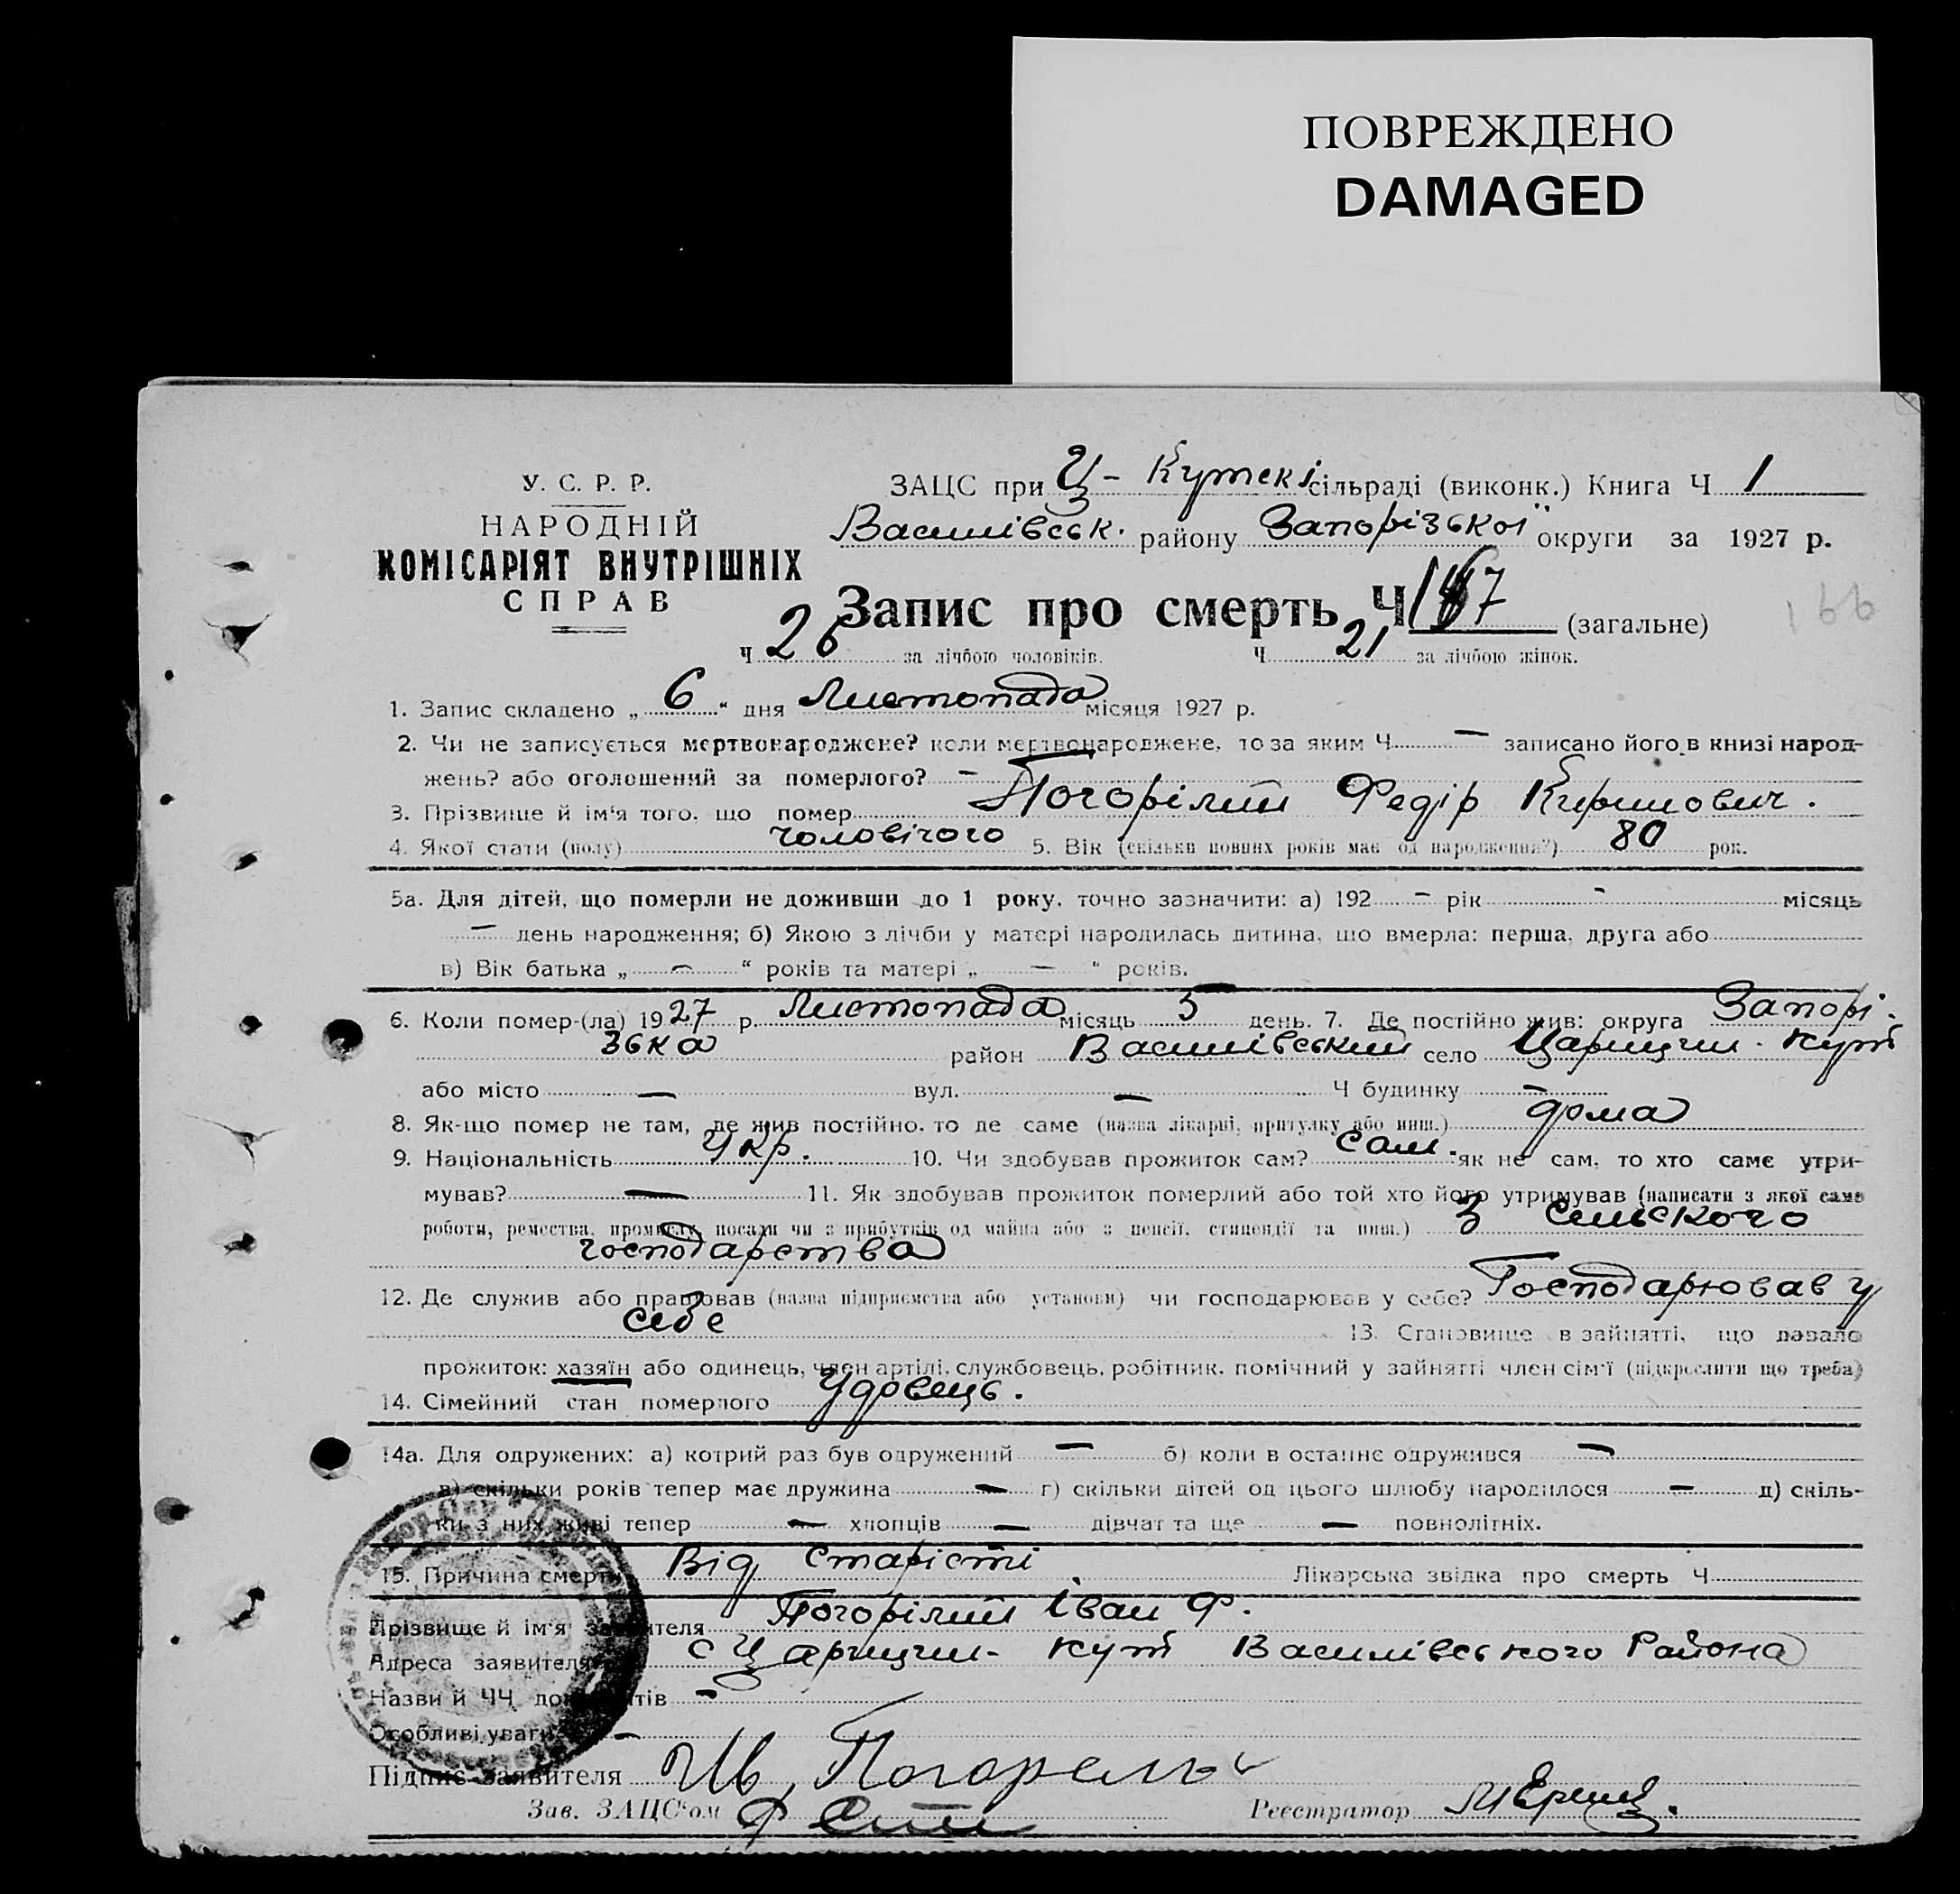 ПОВРЕЖДЕНО
DAMAGED
У. С. Р. Р.
НАРОДНІЙ
КОМІСАРІЯТ ВНУТРІШНІХ
СПРАВ
ЗАЦС при Ц-Кутскі сільраді (виконк.) Книга Ч 1
Василівськ. району Запорізької округи за 1927 р.
Запис про смерть Ч 147 (загальне)
166
Ч 26 за лічбою чоловіків. Ч 21 за лічбою жінок.
1. Запис складено „ 6 “ дня Листопада місяця 1927 р.
2. Чи не записується мертвонароджене? коли мертвонароджене, то за яким Ч — записано його в книзі народ-
жень? або оголошений за померлого? —
3. Прізвище й ім'я того, що помер Погорілий Федір Кирилович.
4. Якої стати (полу) чоловічого 5. Вік (скільки повних років має од народження?) 80 рок.
5а. Для дітей, що померли не доживши до 1 року, точно зазначити: а) 192 — рік — місяць
— день народження; б) Якою з лічби у матері народилась дитина, що вмерла: перша, друга або
в) Вік батька „ — “ років та матері „ — “ років.
6. Коли помер-(ла) 1927 р. Листопада місяць 5 день. 7. Де постійно жив: округа Запорі-
зька район Василівський село Царицин-Кут
або місто — вул. — Ч будинку —
8. Як-що помер не там, де жив постійно, то де саме (назва лікарні, притулку або инш.) дома
9. Національність Укр. 10. Чи здобував прожиток сам? Сам. як не сам, то хто саме утри-
мував? — 11. Як здобував прожиток померлий або той хто його утримував (написати з якої саме
роботи, ремества, промислу, посади чи з прибутків од майна або з пенсії, стипендії та инш.) З сельского
господарства
12. Де служив або працював (назва підприємства або установи) чи господарював у себе? Господарював у
себе 13. Становище в зайнятті, що давало
прожиток: хазяїн або одинець, член артілі, службовець, робітник, помічний у зайнятті член сім'ї (підкреслити що треба)
14. Сімейний стан померлого Удовець.
14а. Для одружених: а) котрий раз був одружений — б) коли в останнє одружився —
в) скільки років тепер має дружина — г) скільки дітей од цього шлюбу народилося — д) скіль-
ки з них живі тепер — хлопців — дівчат та ще — повнолітніх.
15. Причина смерти Від старісті Лікарська звідка про смерть Ч
Прізвище й ім'я заявителя Погорілий Іван Ф.
Адреса заявителя с Царицин-Кут Василівського Района
Назви й ЧЧ документів —
Особливі уваги —
Підпис заявителя Ив. Погорелый
Зав. ЗАЦС'ом
Реєстратор